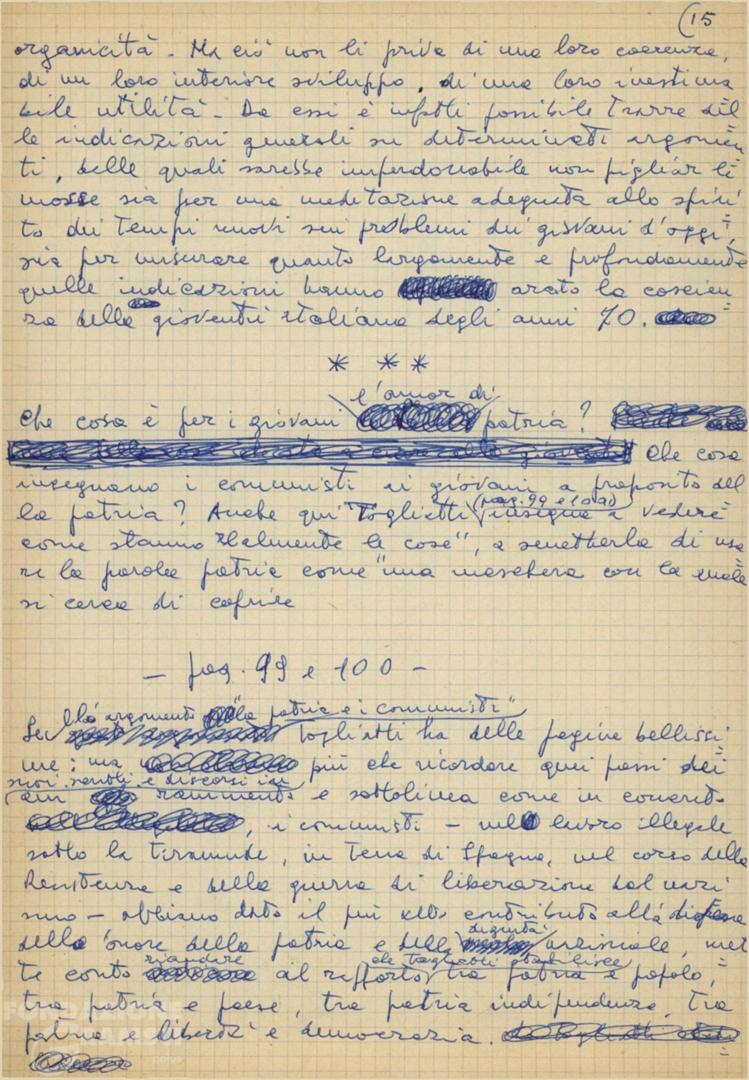 (15
organicità - Ma ciò non li priva di una loro coerenza,
di un loro interiore sviluppo, di una loro inestima
bile utilità - Da essi è infatti possibile trarre del
le indicazioni generali su determinati argomen
ti, delle quali sarebbe imperdonabile non pigliar le
mosse sia per una meditazione adeguata allo spiri=
to dei tempi nuovi sui problemi dei giovani d'oggi,
sia per misurare quanto largamente e profondamente
quelle indicazioni hanno arato la coscien=
za della gioventù italiana degli anni 70.
* * *
l'amor di
Che cosa è per i giovani patria?
Che cosa
insegnano i comunisti ai giovani a proposito del
(pag. 99 e 100)
la patria? Anche qui Togliatti "insegna a vedere=
come stanno realmente le cose", a smetterla di usa
re la parola patria come "una maschera con la quale=
si cerca di coprire
- pag. 99 e 100 -
llo argomento della "patria e i comunisti"
Su Togliatti ha delle pagine bellissi=
me; ma più che ricordare quei passi dei
suoi scritti e discorsi in
cui rammenta e sottolinea come in concreto
, i comunisti - nel lavoro illegale
sotto la tirannide, in terra di Spagna, nel corso della
Resistenza e della guerra di liberazione dal nazi
smo - abbiano dato il più alto contributo alla difesa
dignità
della onore della patria e della nazionale, met=
riandare che Togliatti stabilisce
te conto al rapporto tra patria e popolo,
tra patria e paese, tra patria indipendenza, tra
patria e libertà e democrazia.